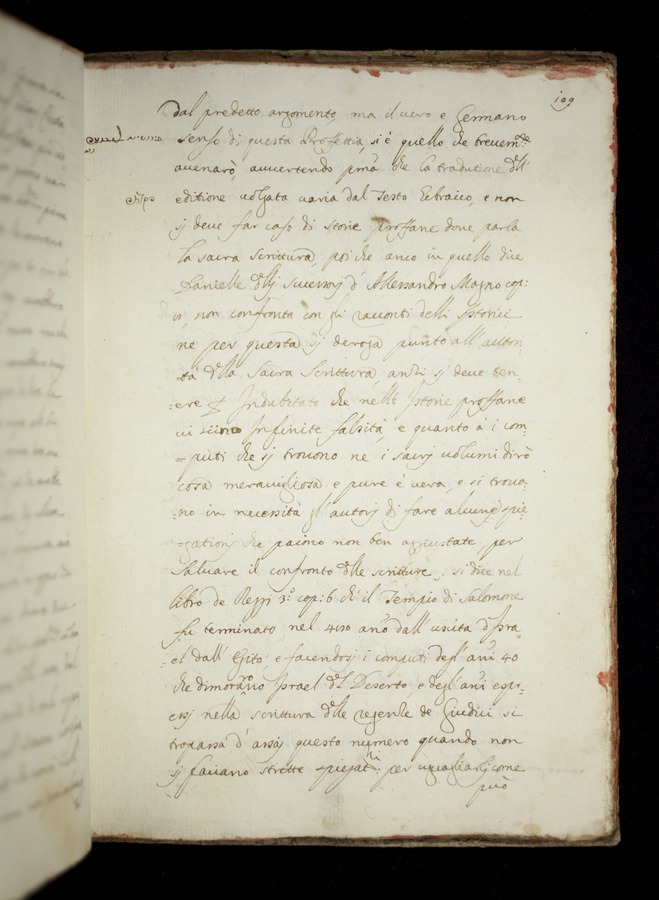 109
dal predetto argomento, ma il vero e Germano
senso di questa Proffettia, si è quello che brevem.te
avenarò, avvertendo p̃ma che la tradutione dell'
editione volgata varia dal Testo Ebraico, e non
si deve far caso di storie proffane dove parla
la sacra scrittura, poi che anco in quello dice
Danielle delli sucessorj d'Allessandro Magno cap:
11, non confronta con gli racconti delli Istorici
ne per questo si deroga punto all'autori-
-tà della Sacra Scrittura, anzi si deve ten-
-ere p Indubitato che nelle Istorie proffane
vi siano Infinite falsità, e quanto à i com-
=puti che si trovono ne i sacri volumi dirò
cosa meravigliosa e pure è vera, e si trova-
-no in necessità gl'autorj di fare alcune spie-
-gationj che paiono non ben aggiustate per
salvare il confronto delle scritture. si dice nel
libro de Reggi 3.º cap: 6 ch'il Tempio di Salomone
fu terminato nel 480 año dall'uscita d'Isra-
-el dall'Egito e facendosi i computi degl'añi 40
che dimorarno Israel del Deserto e degl'añi espr-
essj nella scrittura delle regenze de Giudici si
trapassa d'assaj questo numero quando non
si faciano strette spiegat.ni per uguagliarsi come
può